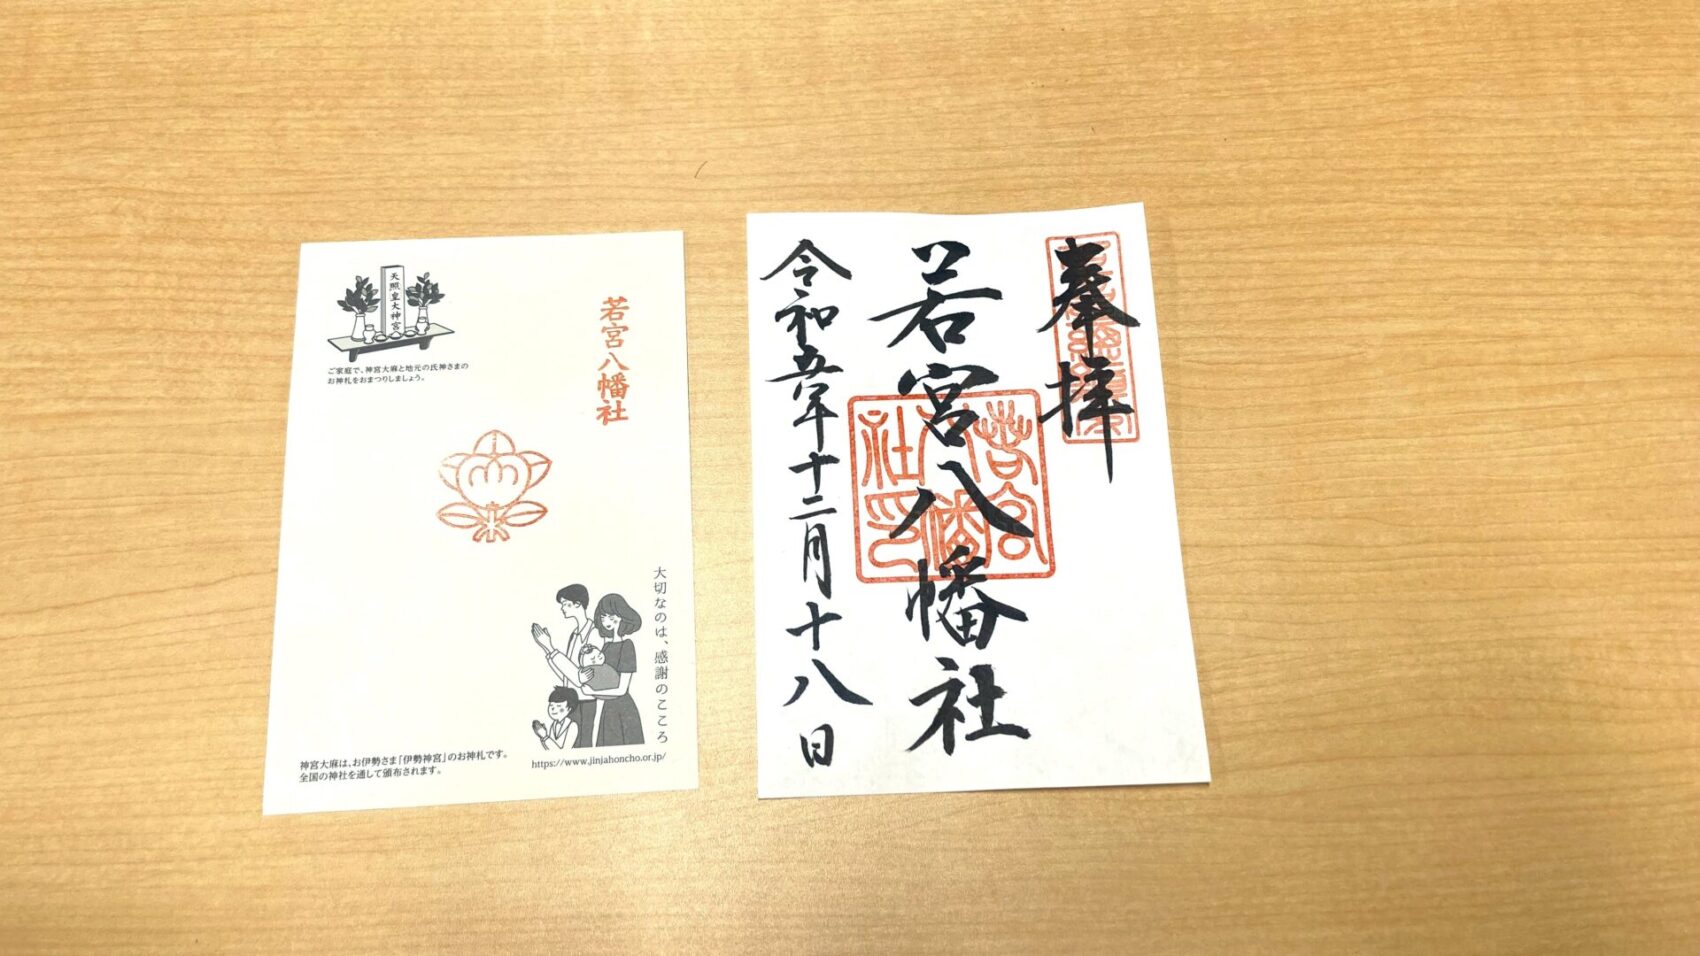 天照皇大神宮
ご家庭で、神宮大麻と地元の氏神さまの
お神札をおまつりしましょう。
若宮八幡社
大切なのは、感謝のこころ
神宮大麻は、お伊勢さま「伊勢神宮」のお神札です。
全国の神社を通して頒布されます。
https://www.jinjahoncho.or.jp/
奉拝
若宮八幡社
若宮
八幡
社印
令和五年十二月十八日